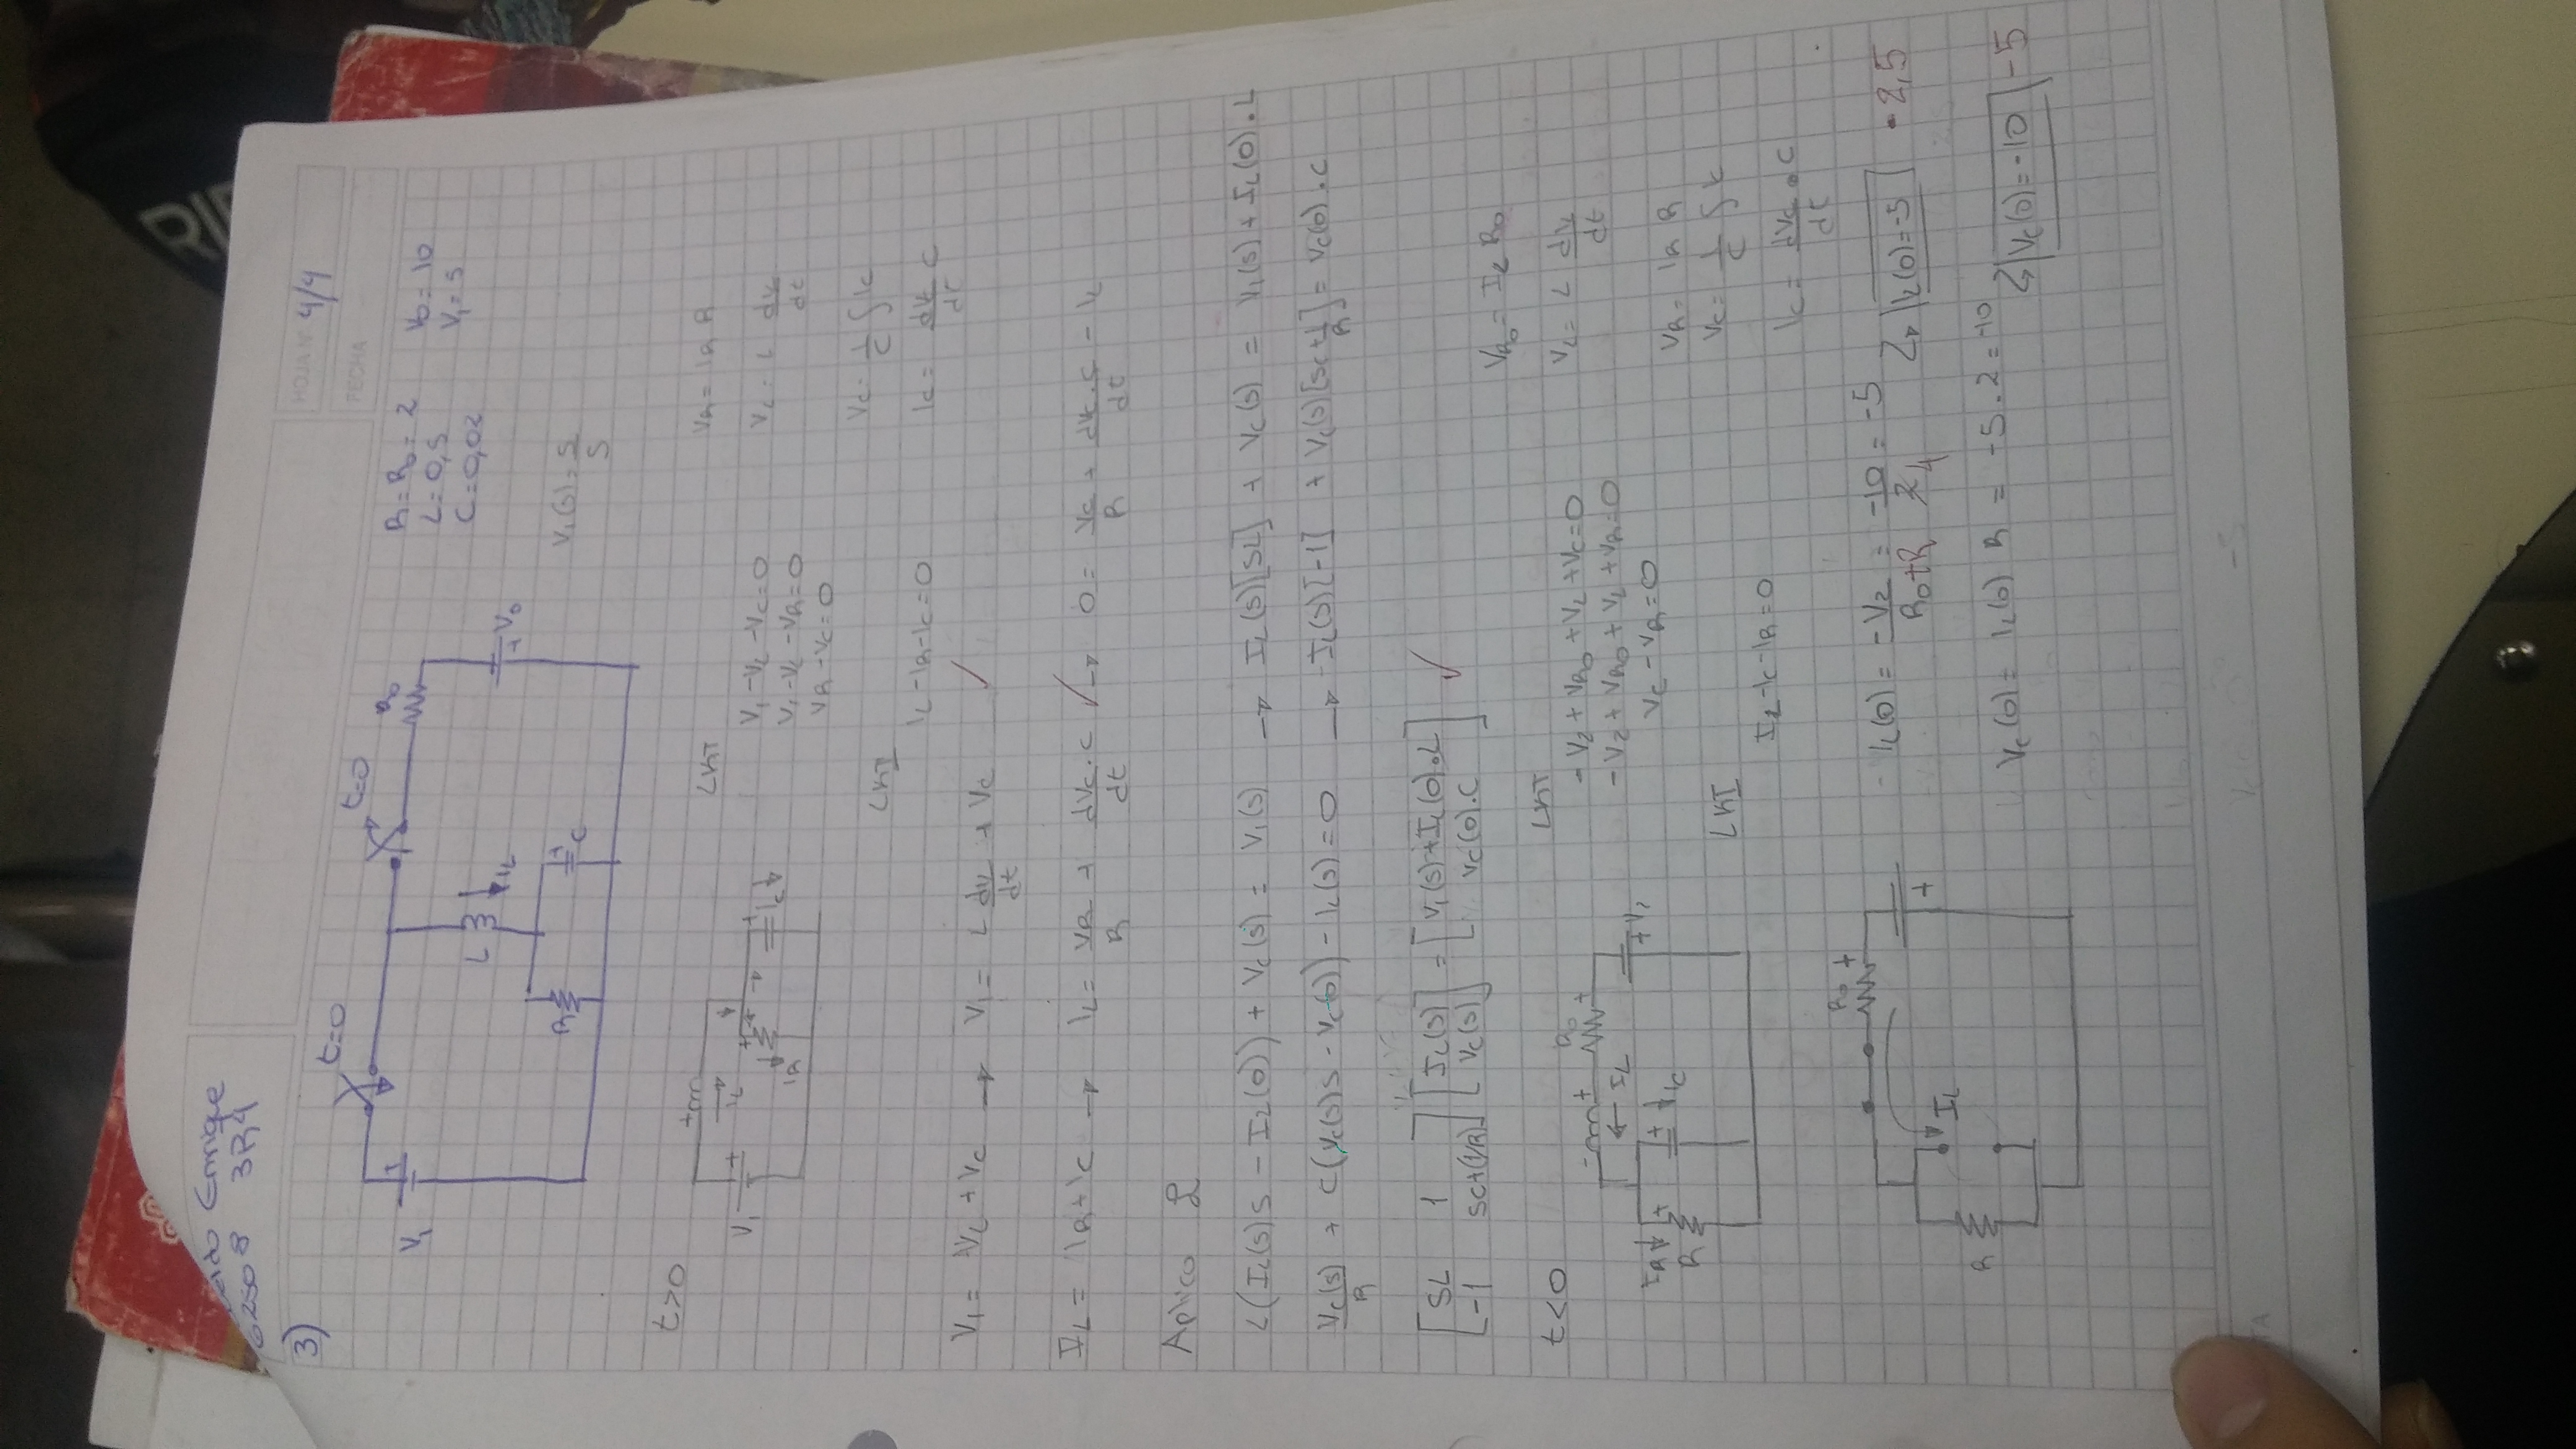 Enrique
62508 3R4
HOJA Nº 4/4
FECHA
3)
t=0
t=0
R0
V1
+
L
IL
+ V0
R
+
C
R = R0 = 2
L = 0,5
C = 0,02
V0 = 10
V1 = 5
V1(s) = 5/s
t>0
+
IL
V1 +
+
+
IR
+
Ic
LKT
V1 - VL - VC = 0
V1 - VL - VR = 0
VR - VC = 0
VR = IR R
VL = L diL/dt
VC = 1/C ∫ ic
LKI
iL - iR - ic = 0
ic = dVc/dt C
V1 = VL + VC → V1 = L diL/dt + VC ✓
IL = IR + IC → IL = VR/R + dVC.C/dt ✓ → 0 = VC/R + dVC.C/dt - iL
Aplico ℒ
L(IL(s)s - IL(0)) + VC(s) = V1(s) → IL(s)[SL] + VC(s) = V1(s) + IL(0).L
VC(s)/R + C(VC(s)s - VC(0)) - IL(s) = 0 → IL(s)[-1] + VC(s)[SC+1/R] = VC(0).C
[SL 1] [IL(s)] = [V1(s)+IL(0).L] ✓
[-1 SC+(1/R)] [VC(s)] [VC(0).C]
t<0
R0
- + +
← IL
IR
+
R
+
IC
+ V2
LKT
- V2 + VR0 + VL + VC = 0
- V2 + VR0 + VL + VR = 0
VC - VR = 0
VR0 = IL R0
VL = L diL/dt
VR = IR R
VC = 1/C ∫ ic
LKI
IL - ic - iR = 0
ic = dVC/dt . C
R0 +
+
IL
R
IL(0) = -V2/R0+R = -10/2 4 = -5
IL(0) = -5 - 2,5
VC(0) = IL(0) R = -5.2 = -10
VC(0) = -10 -5
-5
TA